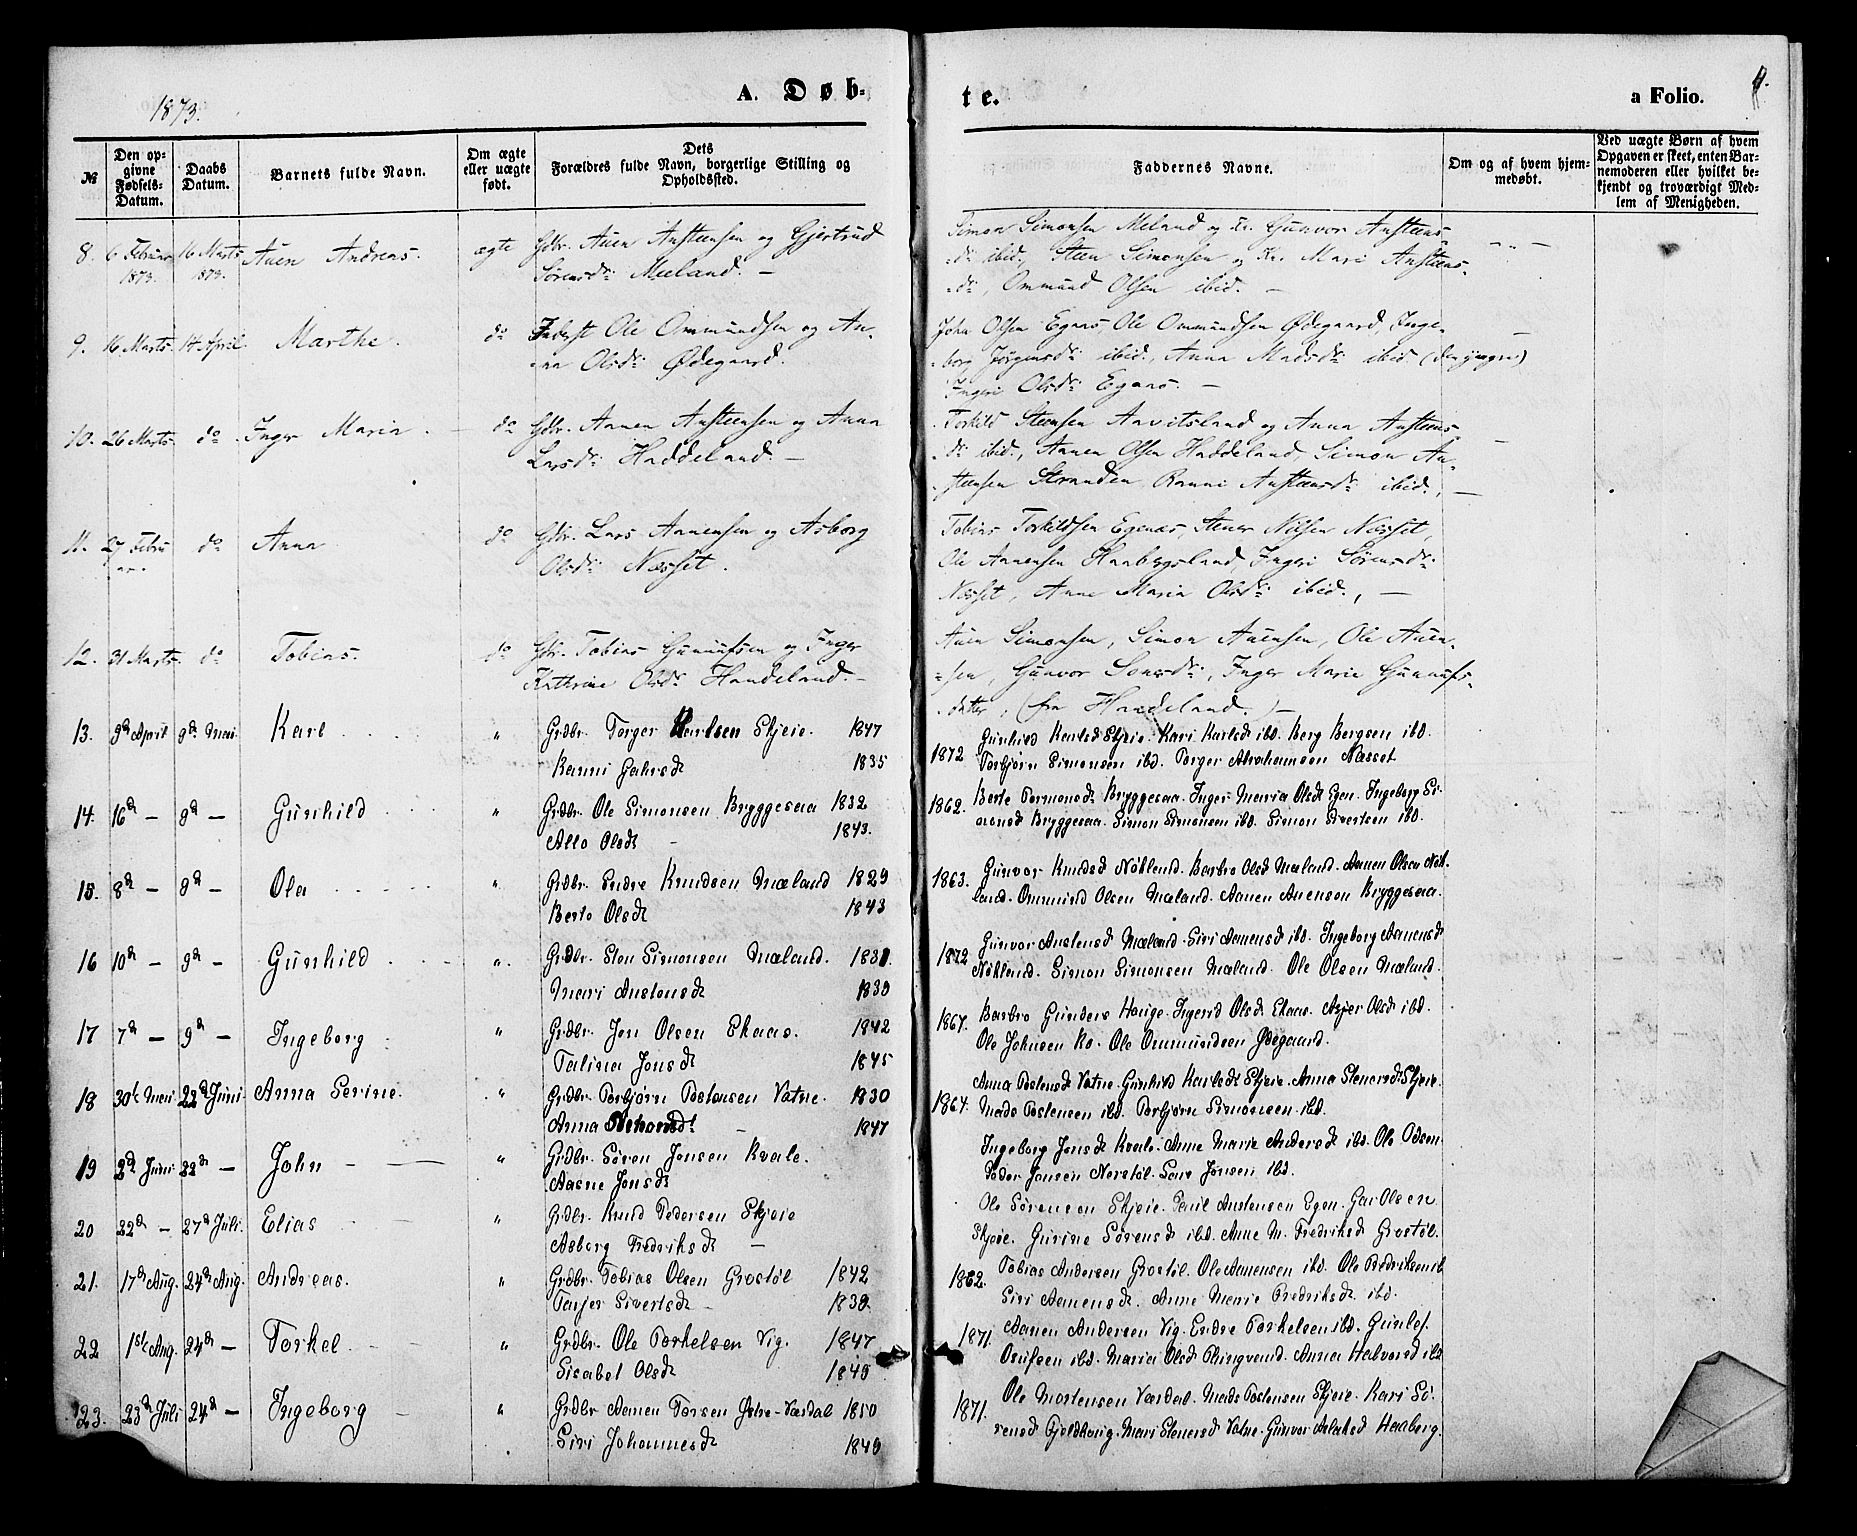 1873.
A. Døb-
te.
a Folio.
№
Den op-
givne
Fødsels-
Datum.
Daabs
Datum.
Barnets fulde Navn.
Om ægte
eller uægte
født.
Dets
Forældres fulde Navn, borgerlige Stilling og
Opholdssted.
Faddernes Navne.
Om og af hvem hjem-
medøbt.
Ved uægte Børn af hvem
Opgaven er skeet, enten Bar-
nemoderen eller hvilket be-
kjendt og troværdigt Med-
lem af Menigheden.
8. 6 Februar 16 Marts Auen Andreas. ægte Gdbr. Auen Ansteensen og Gjertrud
1873. 1873. Sørensdr: Meeland. -
Simon Simonsen Meland og Gunvor Ansteens-
dr: ibid, Steen Simonsen og Mari Ansteens-
dr:, Ommund Olsen ibid. -
9. 16 Marts 14 April Marthe. do Inderst Ole Ommundsen og An-
na Olsdr: Ødegaard.
John Olsen Egaas, Ole Ommundsen Ødegaard, Inge-
borg Jørgensdr: ibid., Anna Madsdr: ibid (den yngre)
Ingeri Olsdr: Egaas. -
10. 26 Marts do Inger Maria. do Gdbr. Aanen Ansteensen og Anna
Larsdr: Haddeland. -
Torkild Steensen Aavitsland og Anna Ansteens-
dr: ibid., Aanen Olsen Haddeland, Simon An-
steensen Stranden, Ranni Ansteensdr: ibid., -
11. 27 Febru do Anna do Gdbr. Lars Aanensen og Asborg
ar. Olsdr: Næsset.
Tobias Torkildsen Egenæs, Stener Nilsen Næsset,
Ole Aanensen Haabegsland, Ingeri Sørensdr:
Næsset, Anne Maria Olsdr: ibid., -
12. 31 Marts do Tobias. do Gdbr. Tobias Gunulfsen og Inger
Kathrine Olsdr: Haadeland. -
Auen Simonsen, Simon Auensen, Ole Auen-
sen, Gunvor Sørensdr:, Inger Marie Gunulfs-
datter, (fra Haadeland.) -
13. 9d April 9de Mai. Karl " Grdbr. Torger Karlsen Skjeie. 1847
Ranni Gahrsdt 1835
1872 Gunhild Karlsdt Skjeie. Kari Karlsdt ibd. Berg Bergsen ibd.
Torbjørn Simonsen ibd. Torger Abrahamsen Næsset
14. 16d - 9d - Gunhild " Grdbr. Ole Simonsen Bryggesaa 1832
Allo Olsdt - 1843.
1862. Berte Tormonsdt Bryggesaa. Inger Maria Olsdt Egen. Ingeborg Sø-
rensdt Bryggesaa. Simon Simonsen ibd. Simon Sivertsen ibd.
15. 8d - 9d - Ola " Grdbr. Endre Knudsen Mæland 1829
Berte Olsdt 1843
1863. Gunvor Knudsd Nökland. Barbro Olsd Mæland. Aanen Olsen Nök-
land. Ommund Olsen Mæland. Aanen Auensen Bryggesaa.
16 10d - 9d - Gunhild " Grdbr. Sten Simonsen Mæland. 1831.
Mari Anstensdt 1839
1872 Gunvor Anstensdt Mæland. Siri Aanensdt ibd. Ingeborg Aanensdt
Nökland. Simon Simonsen Mæland. Ole Olsen Mæland.
17 7d - 9d - Ingeborg " Grdbr. Jon Olsen Ekaas. 1842
Talina Jonsdt 1845
1867. Barbro Gunders Hauge. Ingerid Olsdt Ekaas. Asjer Olsdt ibd.
Ole Johnsen Ro. Ole Ommundsen Ødegaard.
18 30te Mai 22d Juni Anna Serine. " Grdbr. Torbjørn Tostensen Vatne. 1830
Anna - 1847
1864. Anna Tostensdt Vatne. Gunhild Karlsdt Skjeie. Anna Stenersdt Skjeie.
Mads Tostensen ibd. Torbjørn Simonsen ibd.
19 2d Juni 22d - John " Grdbr. Søren Jonsen Kvale.
Aasne Jonsdt
Ingeborg Jonsdt Kvale. Anne Marie Andersdt ibd. Ole Odsen.
Peder Jonsen Norstøl. Jonsen ibd.
20 22d - 27d Juli. Elias " Grdbr. Knud Pedersen Skjeie
Asborg Fredriksdt -
Ole Sörensen Skjeie. Anstensen Egen. Gar Olsen
Skjeie. Gurine Sörensdt ibd. Anne M. Fredriksdt Grostøl.
21. 17d Aug. 24d Aug. Andreas. " Grdbr. Tobias Olsen Grostöl 1842
Tarjer Sivertsdt - 1839
1862. Tobias Andersen Grostöl. Ole Aanensen ibd. Ole Fredriksen ib.
Siri Aanensdt. Anne Marie Fredriksdt ibd.
22 1ste Aug. 24d - Torkel. " Grdbr. Ole Torkelsen Vig. 1847
Lisabet Olsdt 1849
1871. Aanen Andersen Vig. Endre Torkelsen ibd. Gunlef
Osufsen ibd. Maria Olsdt Thingvend. Anna Halvorsd ibd
23. 23d Juli 24d - Ingeborg " Grdbr Aanen Torsen Ytre-Værdal 1850
Siri Johannesdt 1849
1871. Ole Mortensen Værdal. Mads Tostensen Skjeie. Kari Sø-
rensd Fjeldhaug. Mari Stenersd Vatne. Gunvor Aslaksd Haaberg.